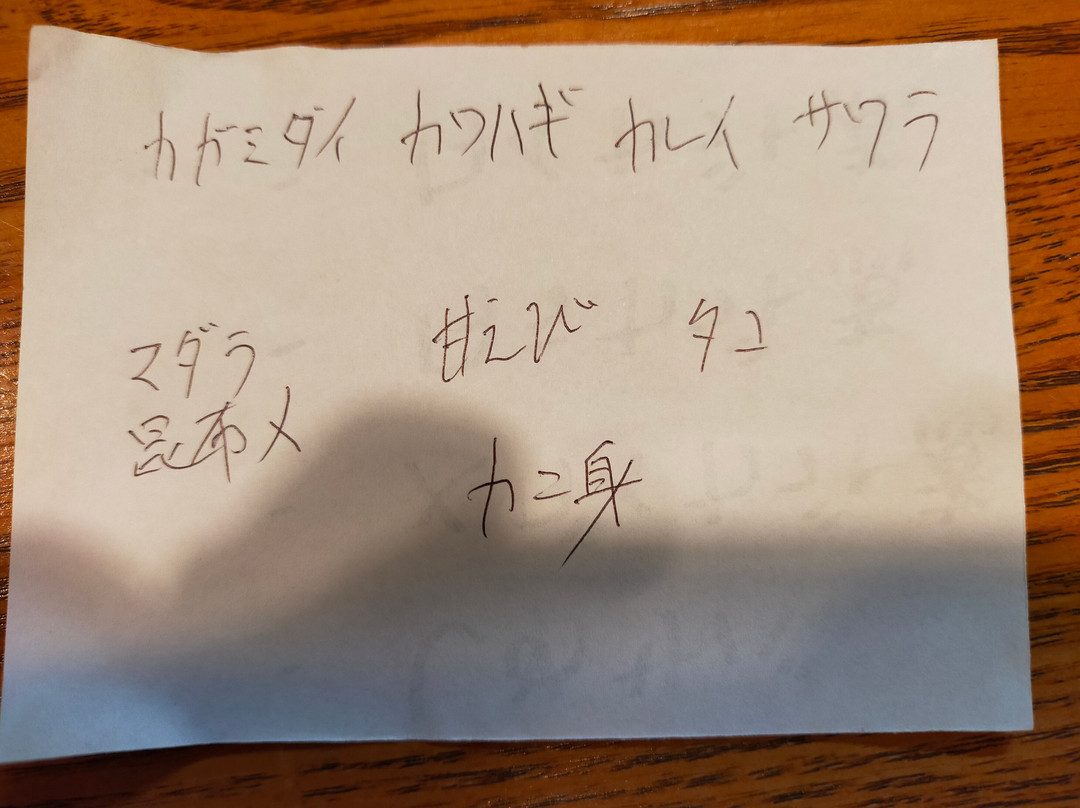 カガミダイ カワハギ カレイ サワラ
マダラ 甘えび タコ
昆布〆
カニ身